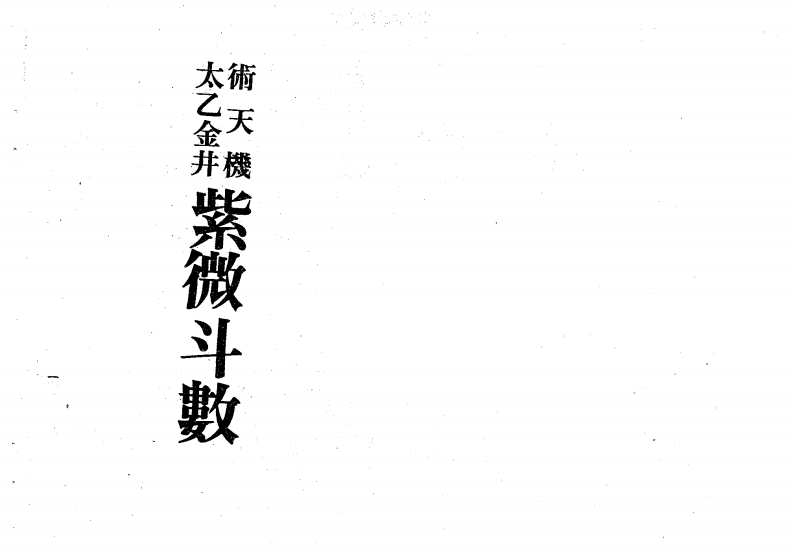 術天機
太乙金井
紫微斗數
一